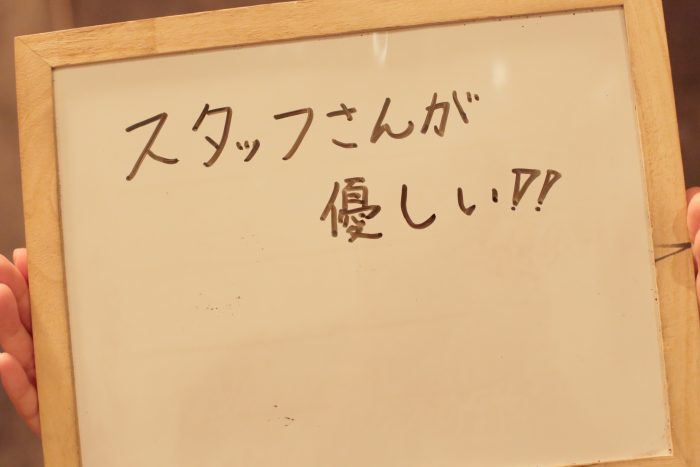 スタッフさんが
優しい!!